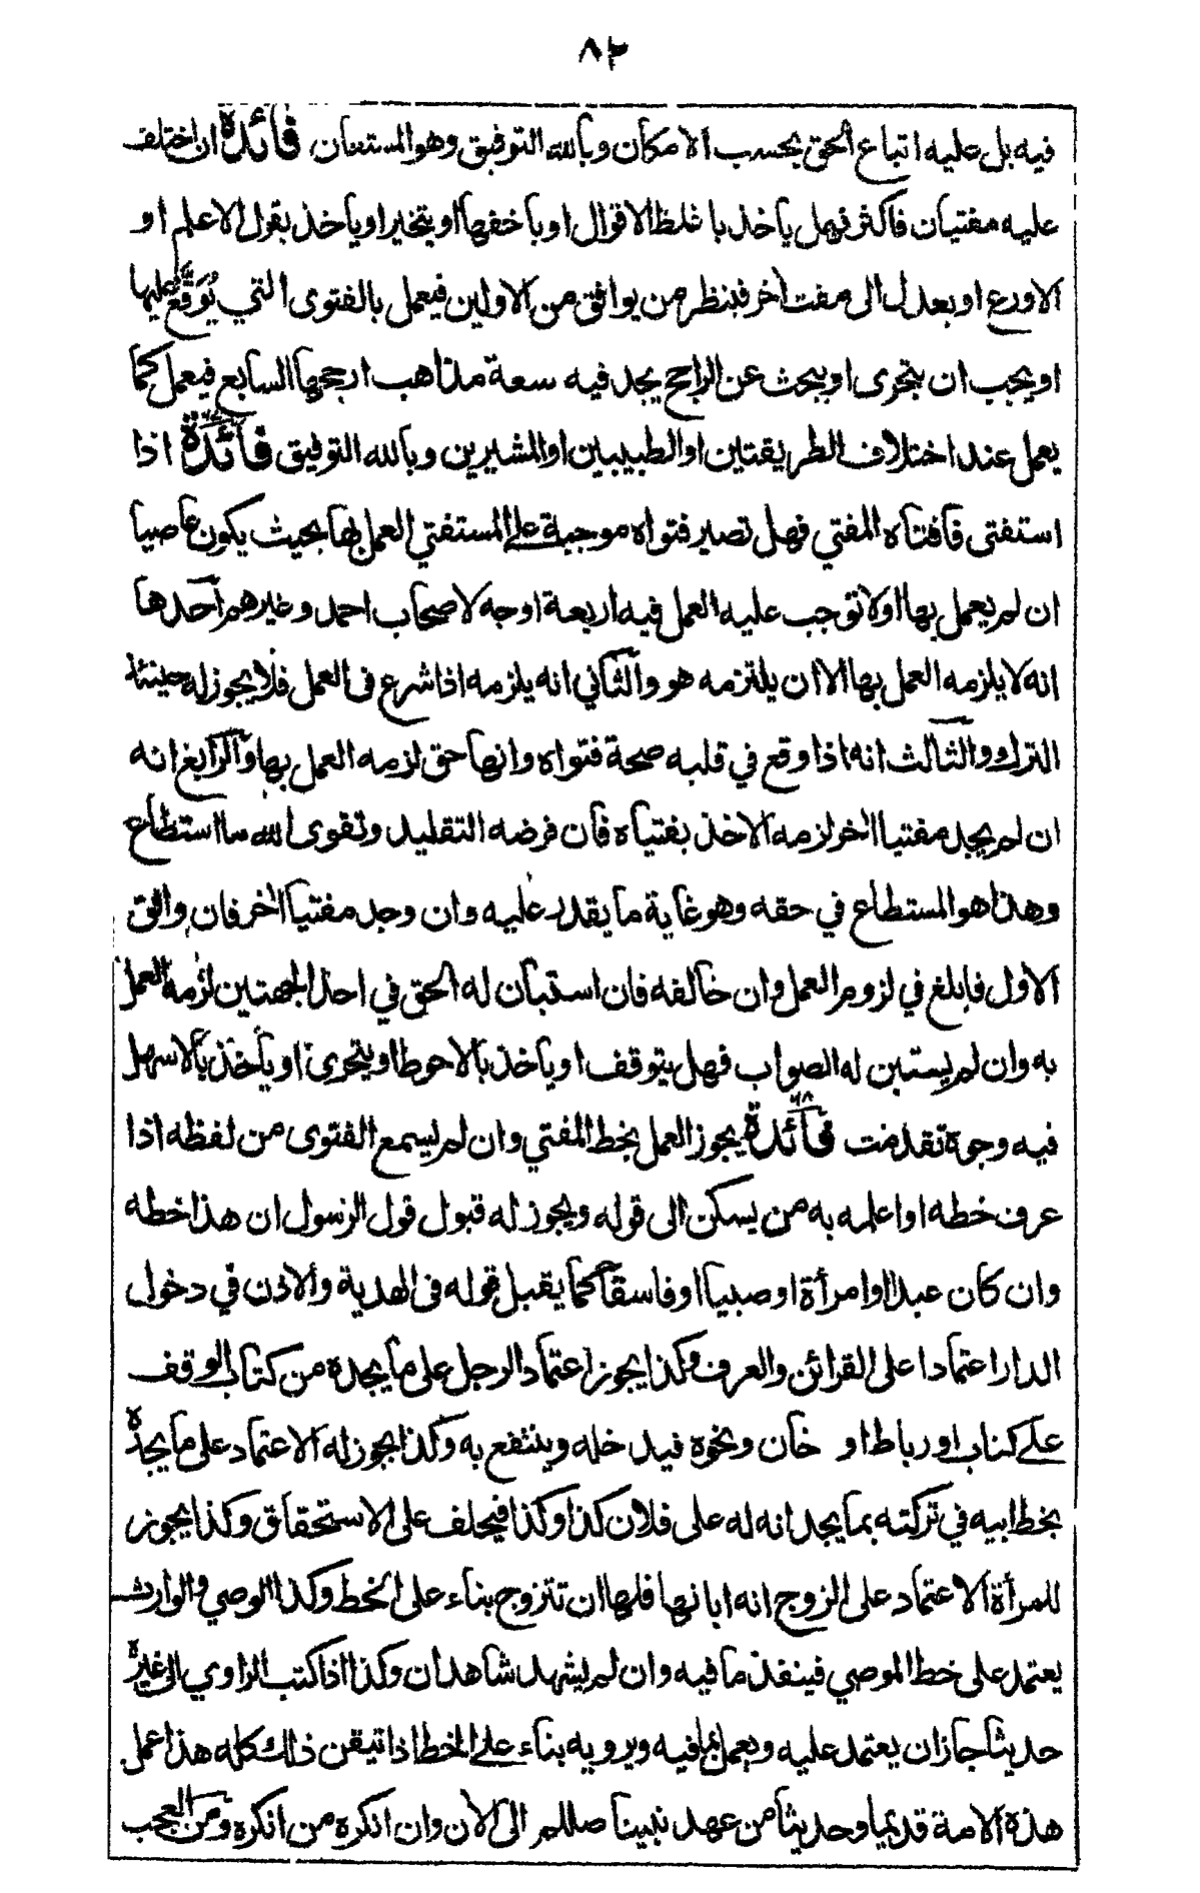 ٨٢
فيه بل عليه اتباع الحق بحسب الامكان وبالله التوفيق وهو المستعان، فائدة ان اختلف
عليه مفتيان فاكثر فهل ياخذ باغلظ الاقوال او باخفها او يتخير او ياخذ بقول الاعلم او
الاورع او يعدل الى مفت اخر فينظر من يوافق من الاولين فيعمل بالفتوى التي يُوَقَّع عليها
او يجب ان يتحرى او يبحث عن الراجح يجد فيه سعة مذاهب ارجحها السابع فيعمل كما
يعمل عند اختلاف الطريقتين او الطبيبين او المشيرين وبالله التوفيق فائدة اذا
استفتى فافتاه المفتي فهل تصير فتواه موجبة على المستفتي العمل بها بحيث يكون عاصيا
ان لم يعمل بها او لا توجب عليه العمل فيه اربعة اوجه لاصحاب احمد وغيرهم احدها
انه لا يلزمه العمل بها الا ان يلتزمه هو والثاني انه يلزمه اذا شرع فى العمل فلا يجوز له حينئذ
الترك والثالث انه اذا وقع في قلبه صحة فتواه وانها حق لزمه العمل بها والرابع انه
ان لم يجد مفتيا اخر لزمه الاخذ بفتياه فان فرضه التقليد وتقوى الله ما استطاع
وهذا هو المستطاع في حقه وهو غاية ما يقدر عليه وان وجد مفتيا اخر فان وافق
الاول فابلغ في لزوم العمل وان خالفه فان استبان له الحق في احد الجهتين لزمه العمل
به وان لم يستبن له الصواب فهل يتوقف او ياخذ بالاحوط او يتحرى او يأخذ بالاسهل
فيه وجوه تقدمت فائدة يجوز العمل بخط المفتي وان لم يسمع الفتوى من لفظه اذا
عرف خطه او اعلمه به من يسكن الى قوله ويجوز له قبول قول الرسول ان هذا خطه
وان كان عبدا او امرأة او صبيا او فاسقا كما يقبل قوله فى الهدية والاذن في دخول
الدار اعتمادا على القرائن والعرف وكذا يجوز اعتماد الرجل على ما يجده من كتاب الوقف
على كتاب او رباط او خان ونحوه فيدخله وينتفع به وكذا يجوز له الاعتماد على ما يجده
بخط ابيه في تركته بما يجد انه له على فلان كذا وكذا فيحلف على الاستحقاق وكذا يجوز
للمرأة الاعتماد على الزوج انه ابانها فلها ان تتزوج بناء على الخط وكذا الوصي والوارث
يعتمد على خط الموصي فينفذ ما فيه وان لم يشهد شاهدان وكذا اذا كتب الراوي الى غيره
حديثا جاز ان يعتمد عليه ويعمل بما فيه ويرويه بناء على الخط اذا تيقن ذلك كله هذا عمل
هذه الامة قديما وحديثا من عهد نبينا صللم الى الآن وان انكره من انكره ومن العجب